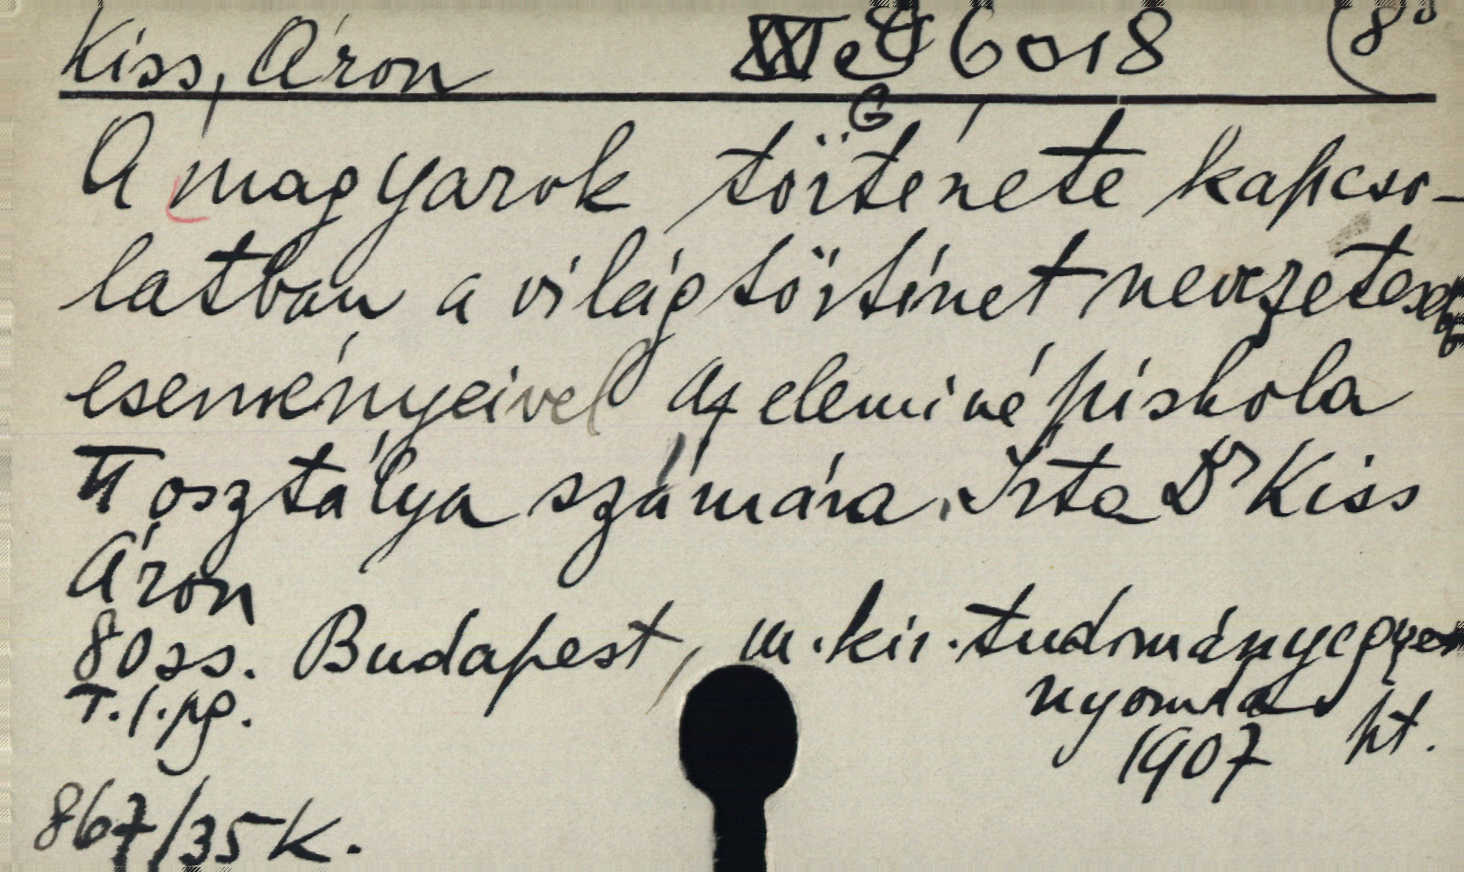 Kiss, Áron XVI e G 6018 8°
A magyarok története kapcso-
latban a világtörténet nevezetesebb
eseményeivel Az elemi népiskola
VI osztálya számára. Írta Dr Kiss
Áron
80 ss. Budapest, m. kir. tudományegyem
nyomda
T. l. pg.
1907 ht.
867/35 K.